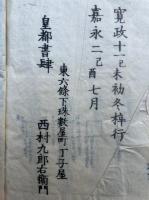 寛政十一己未初冬梓行
嘉永二己酉七月
東六條下珠數屋町丁子屋
皇都書肆
西村九郎右衛門